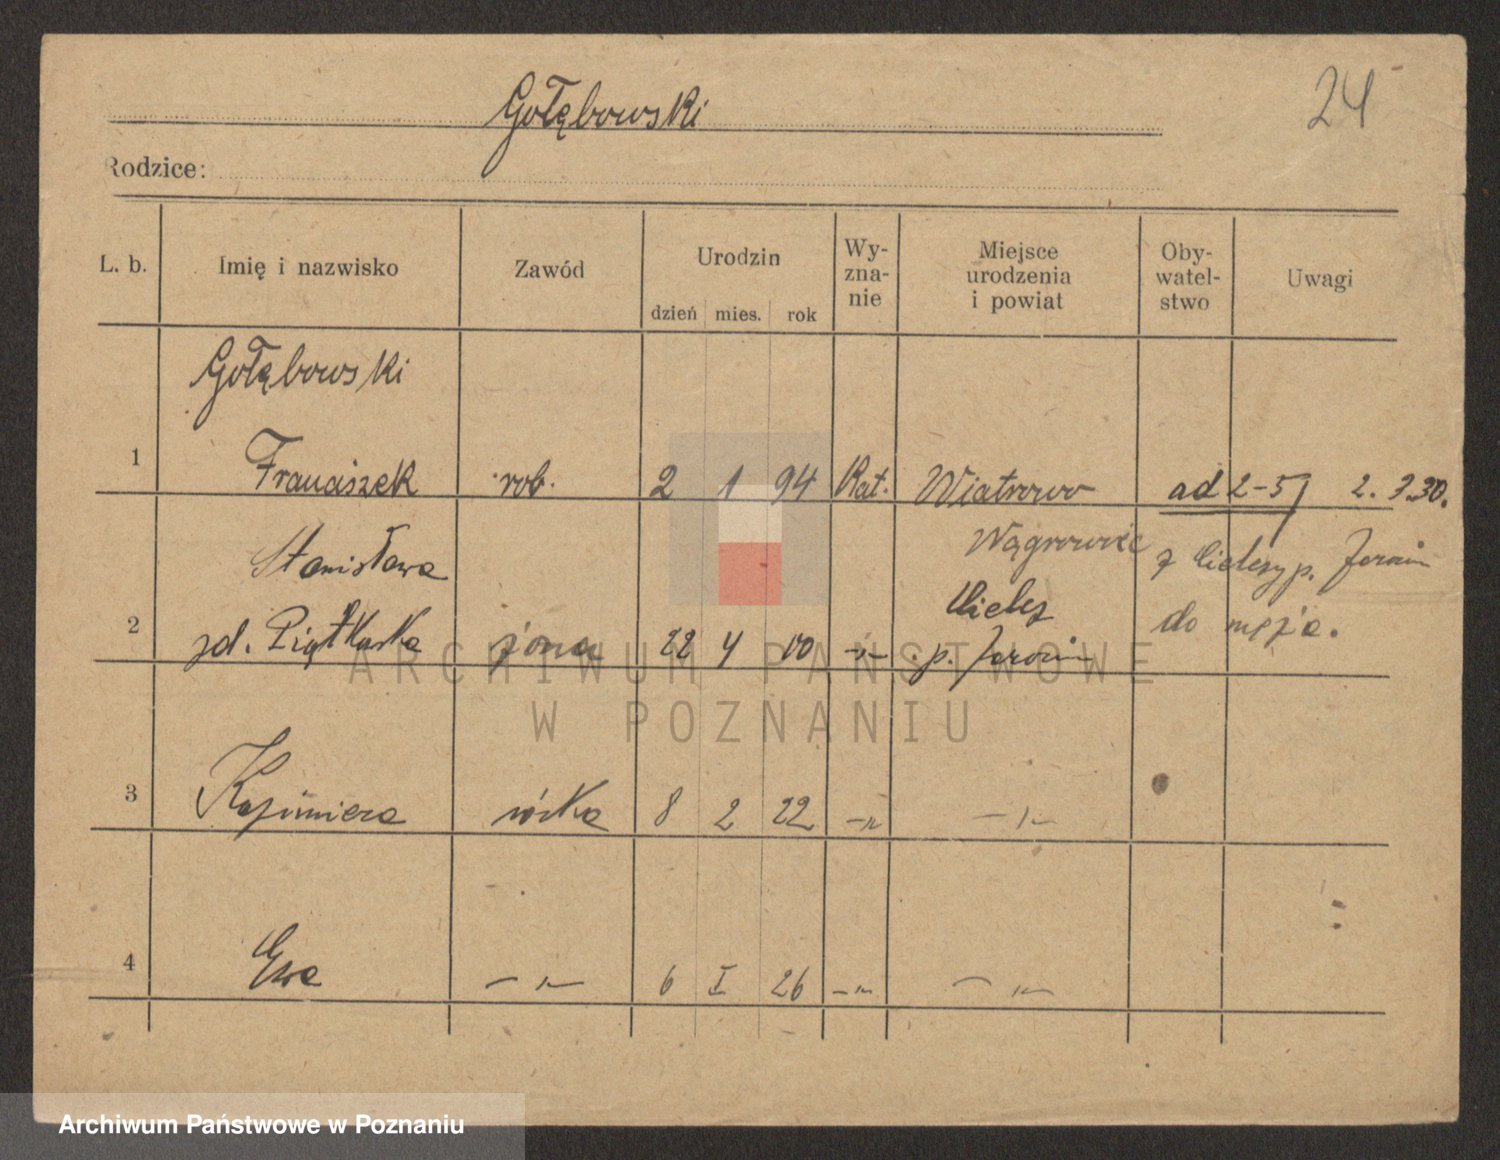 Gołębowski
24
Rodzice:
L. b. Imię i nazwisko Zawód Urodzin dzień mies. rok Wy-zna-nie Miejsce urodzenia i powiat Oby-watel-stwo Uwagi
Gołębowski
1 Franciszek rob. 2 1 94 Kat. Wiatrowo ad 2-5 2. 3.30.
Stanisława Wągrowiec z p. Jarocin
2 zd. Piątkowska żona 22 4 00 -"- p. Jarocin do męża.
ARCHIWUM PAŃSTWOWE
W POZNANIU
3 Kazimiera córka 8 2 22 -"- -"-
4 Ewa -"- 6 I 26 -"- -"-
Archiwum Państwowe w Poznaniu